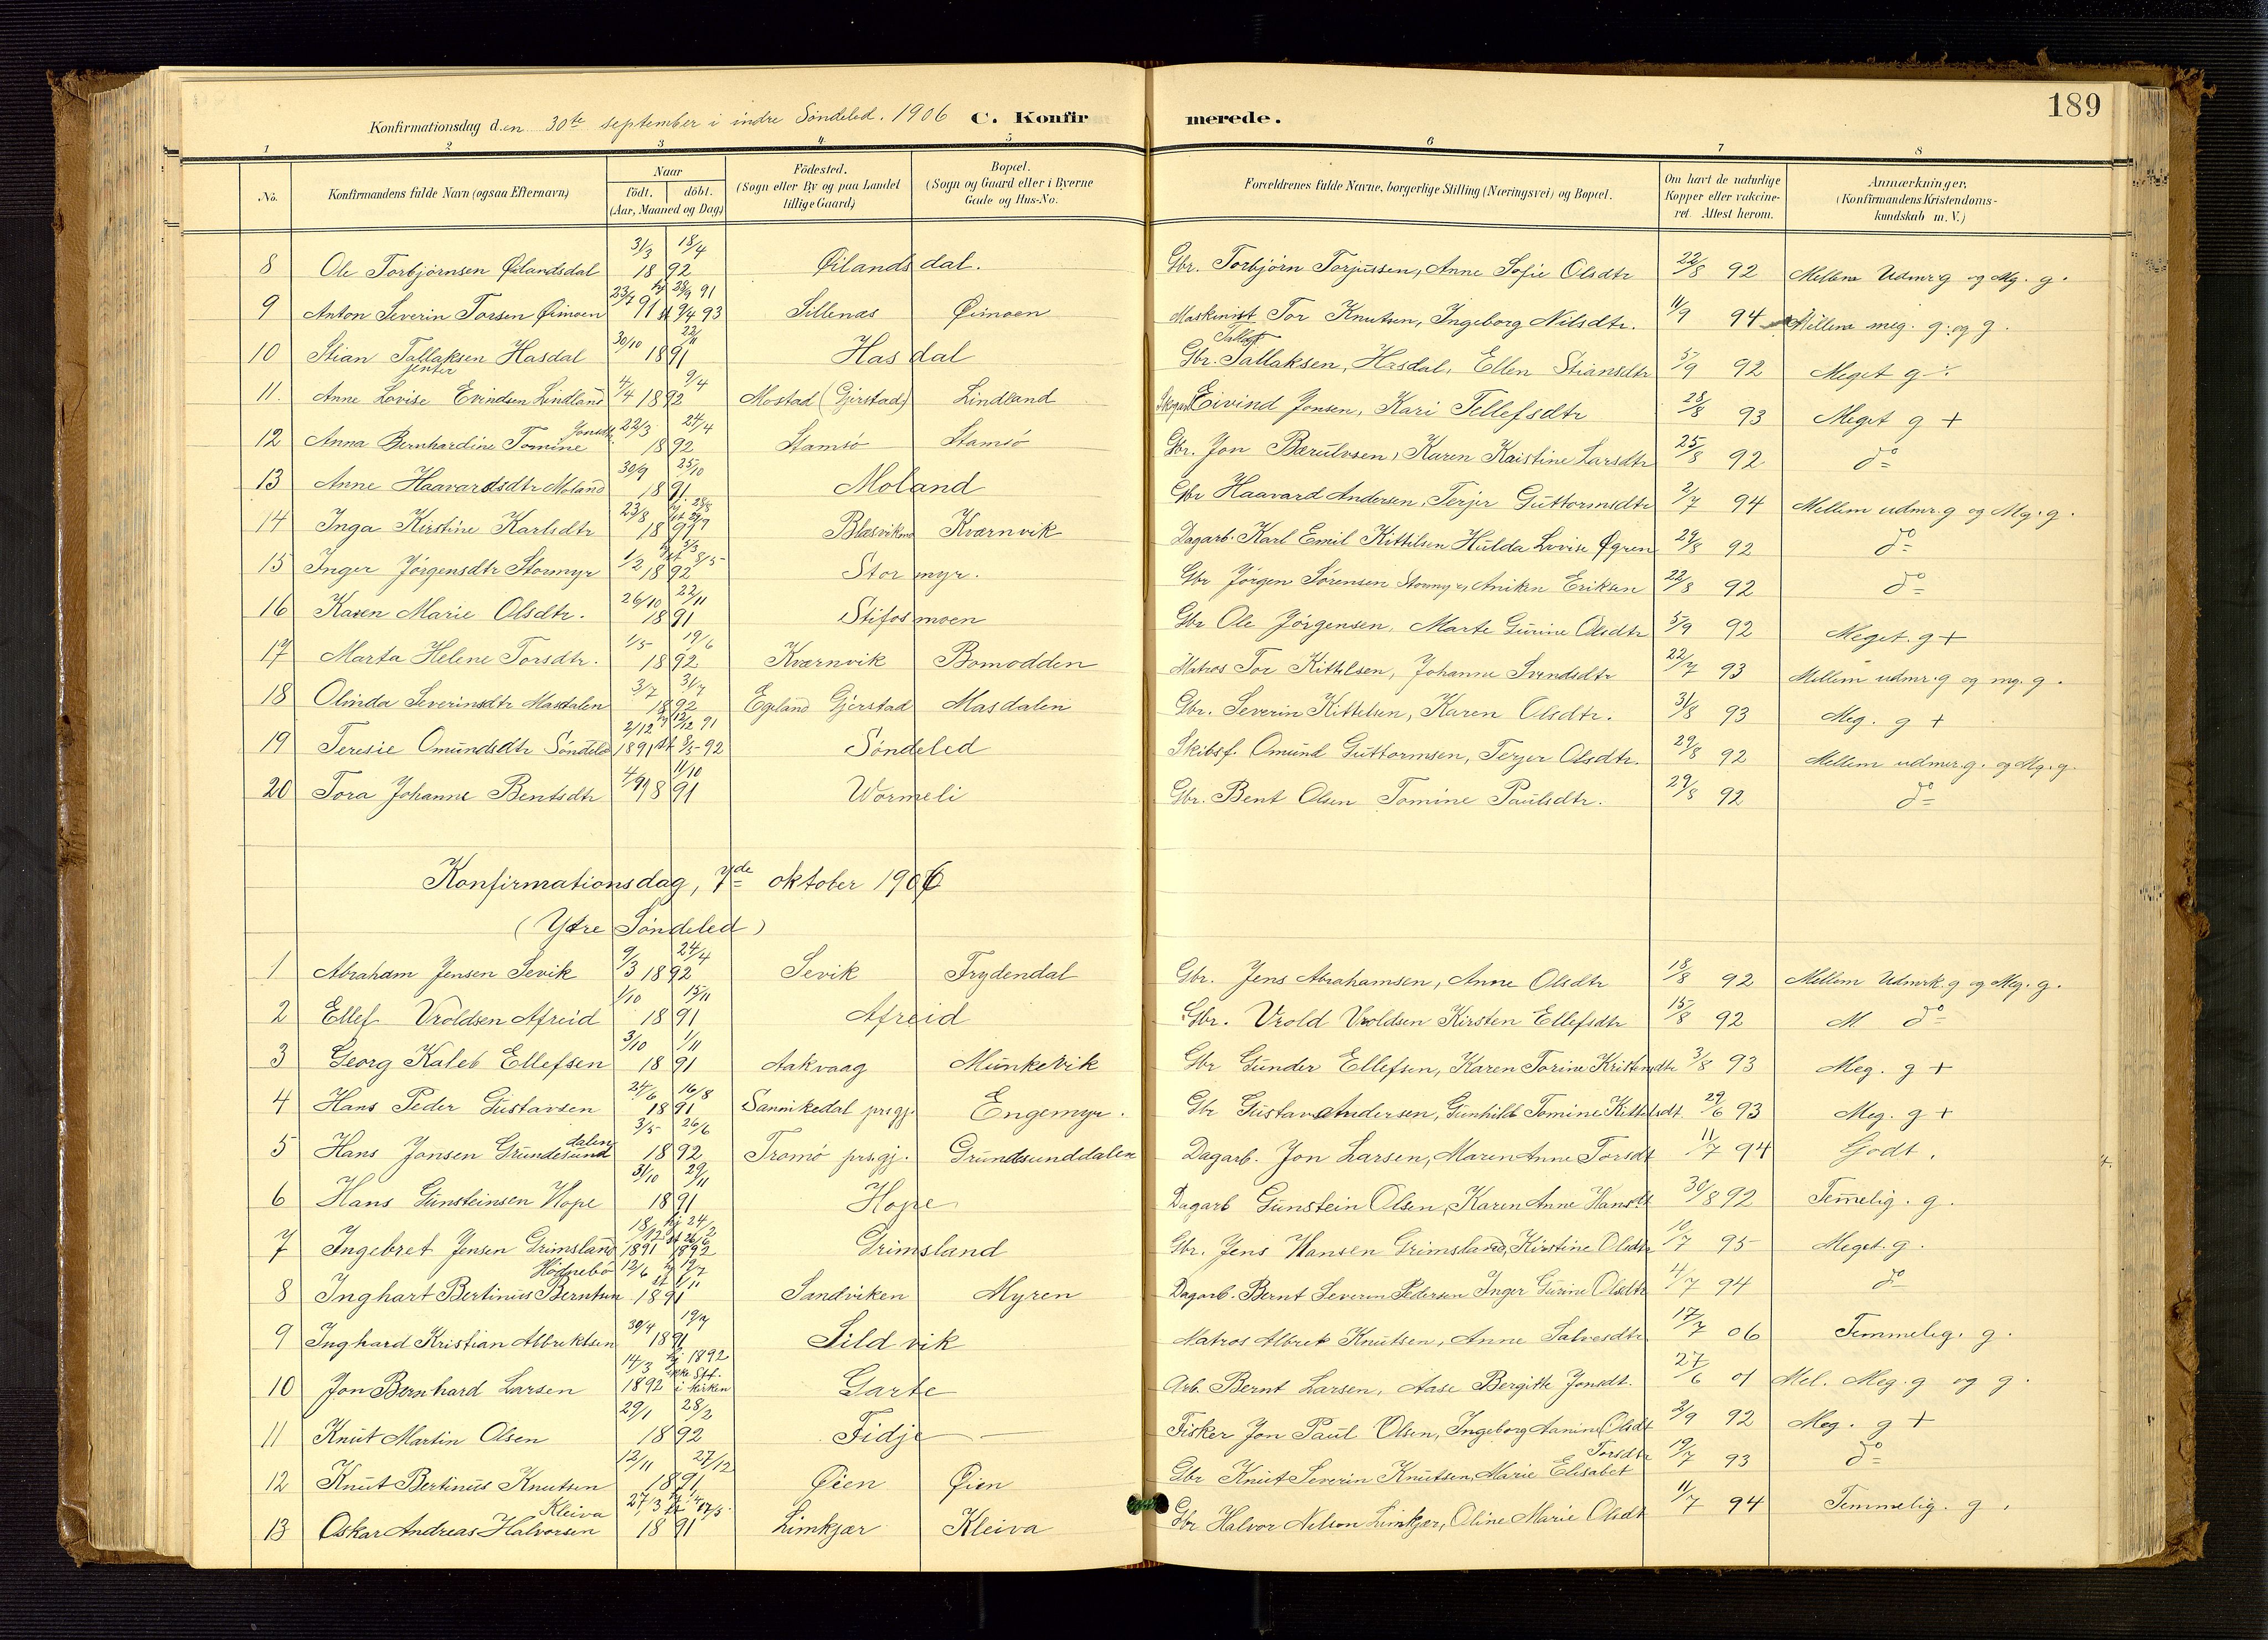 189
Konfirmationsdag den 30te september i indre Söndeled. 1906 C. Konfir merede.
1 2 3 4 5 6 7 8
No. Konfirmandens fulde Navn (ogsaa Efternavn) Naar födt. döbt. (Aar, Maaned og Dag) Födested. (Sogn eller By og paa Landet tillige Gaard) Bopæl. (Sogn og Gaard eller i Byerne Gade og Hus-No. Forældrenes fulde Navne, borgerlige Stilling (Næringsvei) og Bopæl. Om havt de naturlige Kopper eller vakcineret. Attest herom. Anmærkninger. (Konfirmandens Kristendomskundskab m. V.)
8 Ole Torbjörnsen Øilandsdal 31/3 18/4 1892 Øilandsdal. Gbr. Torbjörn Torjussen, Anne Sofie Olsdtr 22/8 92 Mellem Udmr. g og Mg. g.
9 Anton Severin Torsen Øimoen 23/7 91 hj 28/9 91 st 9/4 93 Sillenæs Øimoen Maskinist Tor Knutsen, Ingeborg Nilsdtr. 11/9 94 Mellem meg. g. og g.
10 Stian Tallaksen Hasdal 30/10 22/11 1891 Hasdal Gbr. Tallaksen, Hasdal, Ellen Stiansdtr 5/9 92 Meget g
11. Anne Lovise Evindsen Lindland 4/4 9/4 1892 Mostad (Gjerstad) Lindland Eivind Jonsen, Kari Tellefsdtr 28/8 93 Meget g +
12 Anna Bernhardine Tomine Jonsdtr 22/3 24/4 1892 Stamsö Stamsö Gbr. Jon Bærulvsen, Karen Kristine Larsdtr 25/8 92 do
13 Anne Haavardsdtr Moland 30/9 25/10 1891 Moland Gbr Haavard Andersen, Terjer Guttormsdtr 2/7 94 Mellem udmr. g og Mg. g.
14 Inga Kirstine Karlsdtr 23/8 1891 Kværnvik Dagarb. Karl Emil Kittilsen Hulda Lovise Øgren 29/8 92 do
15 Inger Jörgensdtr Stormyr 1/2 hj 3/3 st 8/5 1892 Stormyr. Gbr Jörgen Sörensen Stormyr, Aniken Eriksen 22/8 92 do
16 Karen Marie Olsdtr. 26/10 22/11 1891 Stifosmoen Gbr Ole Jörgensen, Marte Gurine Olsdtr 5/9 92 Meget. g +
17 Marta Helene Torsdtr. 1/5 19/6 1892 Kværnvik Bomodden Matros Tor Kittilsen, Johanne Svendsdtr 22/7 93 Mellem udmr. g og mg. g.
18 Olinda Severinsdtr Masdalen 3/7 31/7 1892 Egeland Gjerstad Masdalen Gbr. Severin Kittelsen, Karen Olsdtr. 31/8 93 Meg. g +
19 Teresie Omundsdtr Söndeled 2/12 1891 hj 12/12 91 st 8/5-92 Söndeled Skibsf. Omund Guttormsen, Terjer Olsdtr. 29/8 92 Mellem udmr. g. og Mg. g.
20 Tora Johanne Bentsdtr 4/9 11/10 1891 Wormeli Gbr. Bent Olsen Tomine Paulsdtr. 29/8 92 do
Konfirmationsdag, 7de oktober 1906
(Ytre Söndeled)
1 Abraham Jensen Sevik 9/3 24/4 1892 Sevik Frydendal Gbr. Jens Abrahamsen, Anne Olsdtr 18/8 92 Mellem Udmrk. g og Meg. g.
2 Ellef Vroldsen Afreid 1/10 15/11 1891 Afreid Gbr. Vrold Vroldsen Kirsten Ellefsdtr 15/8 92 M do
3 Georg Kaleb Ellefsen 3/10 1/11 1891 Aakvaag Munkevik Gbr Gunder Ellefsen, Karen Torine Kristensdtr 3/8 93 Meg. g +
4 Hans Peder Gustavsen 24/6 16/8 1891 Sannikedal prsgj. Engemyr. Gbr Gustav Andersen, Gunhild Tomine Kittelsdt. 29/6 93 Meg. g +
5 Hans Jonsen Grundesunddalen 3/5 26/6 1892 Tromö prsgj. Grundesunddalen Dagarb. Jon Larsen, Maren Anne Torsdt 11/7 94 Godt.
6 Hans Gunsteinsen Hope 31/10 29/11 1891 Hope Dagarb Gunstein Olsen, Karen Anne Hansdt 30/8 92 Temmelig. g.
7 Ingebret Jensen Grimsland 18/12 1891 hj 24/2 st 26/6 1892 Grimsland Gbr. Jens Hansen Grimsland, Kirstine Olsdtr 10/7 95 Meget. g.
8 Inghart Bertinius Berntsen Hödnebö 12/6 hj 19/7 st 1/11 1891 Sandviken Myren Dagarb. Bernt Severin Pedersen Inger Gurine Olsdtr 4/7 94 do
9 Inghard Kristian Albriktsen 30/4 19/7 1891 Sildvik Matros Albret Knutsen, Anne Salvesdtr 17/7 06 Temmelig. g.
10 Jon Bernhard Larsen 14/3 1892 hj 1892 ikke Stf. i kirken Garte Arb. Bernt Larsen, Aase Bergitte Jonsdt. 27/6 01 Mel. Meg. g og g.
11 Knut Martin Olsen 29/1 28/2 1892 Fidje — Fisker Jon Paul Olsen, Ingeborg Aanine Olsdt 2/9 92 Meg. g +
12 Knut Bertinius Knutsen 12/11 27/12 1891 Øien Øien Gbr Knut Severin Knutsen, Marie Elisabet Torsdtr 19/7 93 do
13 Oskar Andreas Halvorsen Kleiva 27/3 1891 Limkjær Kleiva Gbr Halvor Nelson Limkjær, Oline Marie Olsdt 11/7 94 Temmelig. g.